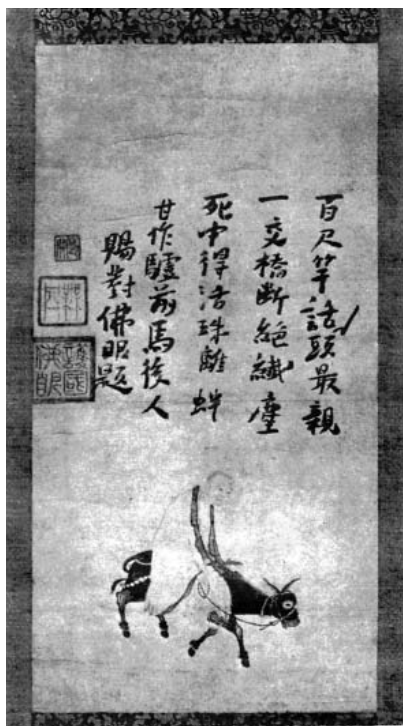 百尺竿話頭最親
一交橋斷絕纖塵
死中得活珠離蚌
甘作驢前馬後人
賜對佛眼題